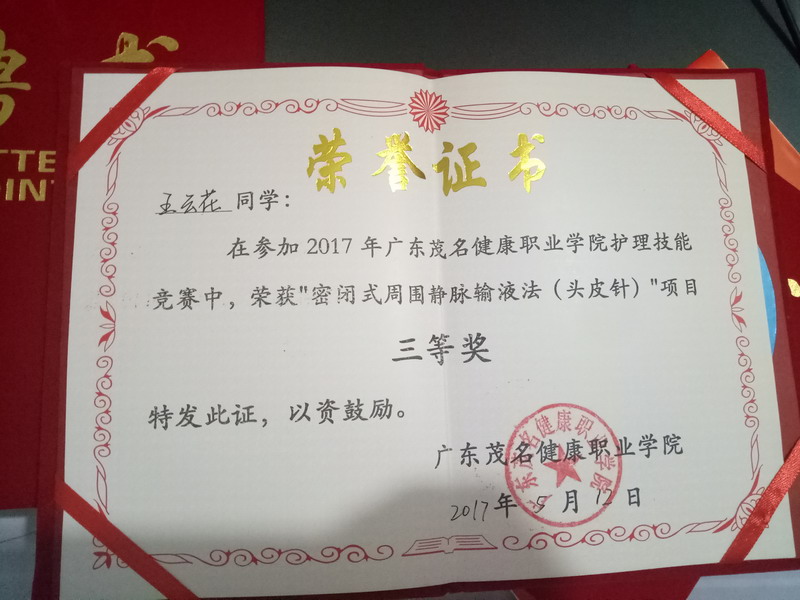 聘书
TTE
OIN
荣誉证书
王云花同学：
在参加 2017 年广东茂名健康职业学院护理技能
竞赛中，荣获"密闭式周围静脉输液法（头皮针）"项目
三等奖
特发此证，以资鼓励。
广东茂名健康职业学院
广东茂名健康职业学院
2017年5月12日